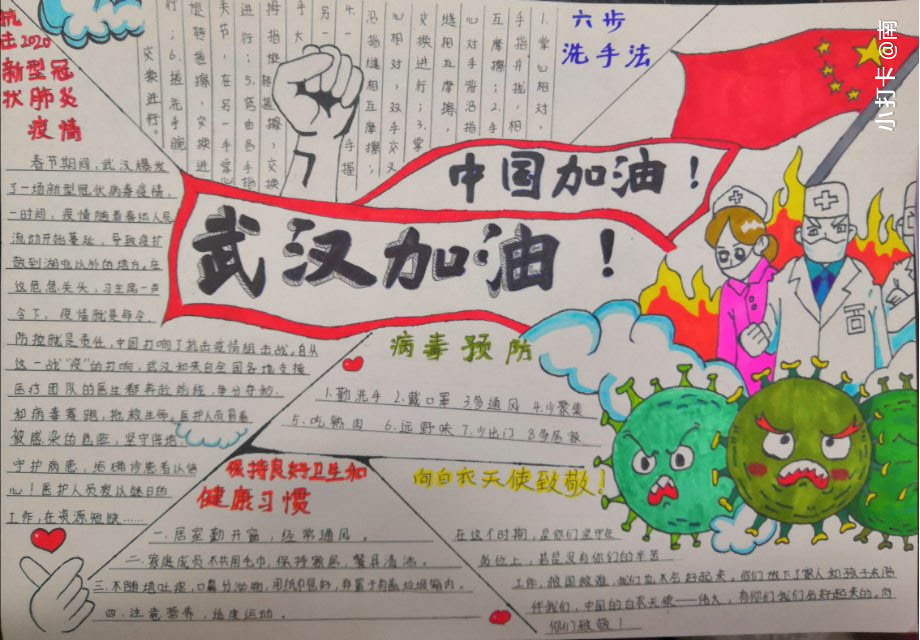 抗
击2020
新型冠
状肺炎
疫情
春节期间,武汉爆发
了一场新型冠状病毒疫情,
一时间,疫情随着春运人员
流动开始蔓延,导致疫扩
散到湖北以外的地方。在
这危急关头,习主席一声
令下,疫情就是命令,
防控就是责任,中国打响了抗击疫情阻击战。自从
这一战“疫”的打响,武汉和来自全国各地支援
医疗团队的医生都奔赴前线,争分夺秒,
和病毒赛跑,抢救生命。医护人员冒着
被感染的危险,坚守阵地
守护病患,给确诊患者以信
心!医护人员发以昧日的
工作,在资源短缺……
六步
洗手法
1.掌心相对,
手指并拢,相
互摩擦;2.手
心对手背沿指
缝相互摩擦,
交换进行;3.掌
心相对,双手交叉
沿指缝相互摩擦;
手握
另一
手大
拇指旋转揉擦,交换
进行;5.弯曲各手指
关节,在另一手掌心
旋转揉擦,交换进
行;6.搓洗手腕
交换进行。
中国加油!
武汉加油!
病毒预防
1.勤洗手 2.戴口罩 3.多通风 4.少聚集
5.吃熟肉 6.远野味 7.少出门 8.多居家
保持良好卫生和
健康习惯
一.居室勤开窗,经常通风。
二.家庭成员不共用毛巾,保持家居,餐具清洁。
三.不随地吐痰,口鼻分泌物,用纸巾包好,弃置于有盖垃圾箱内。
四.注意营养,适度运动。
向白衣天使致敬!
在这个时期,是你们坚守在
岗位上,甚是没有你们的辛苦
工作,救国救难,我们血不会好起来。你们放下了家人和孩子去陪
伴我们,中国的白衣天使——伟大,有你们我们会好起来的。向
你们致敬!
小打卡@南